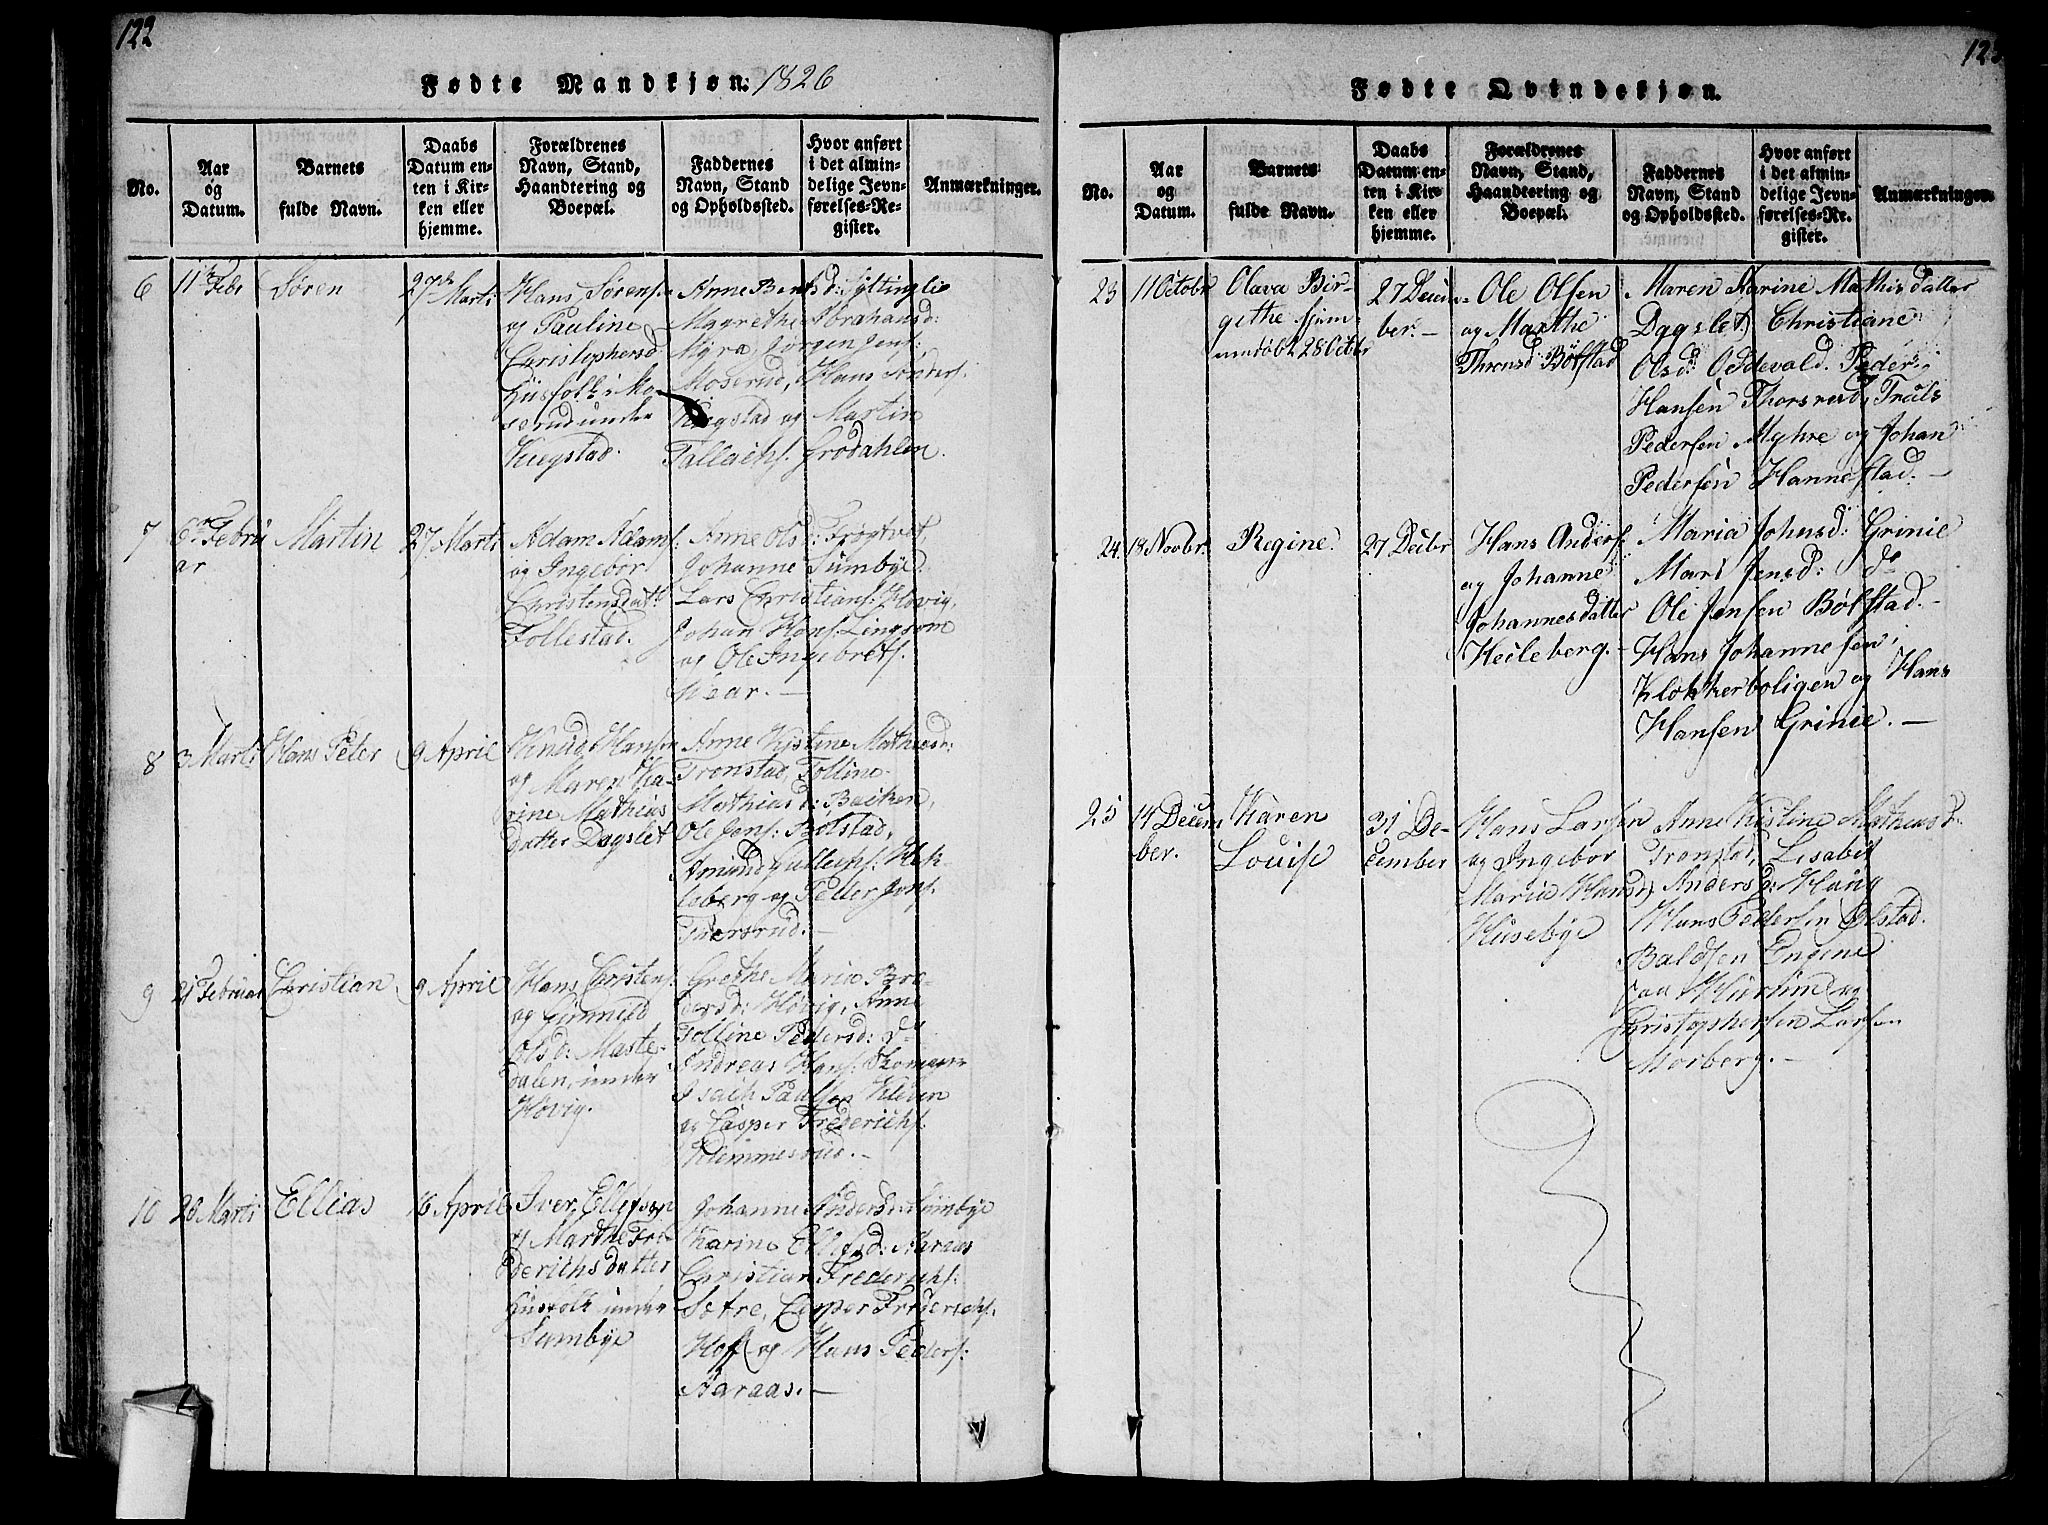 122
Fødte Mandkjøn. 1826
No.
Aar
og
Datum.
Barnets
fulde Navn.
Daabs
Datum en-
ten i Kir-
ken eller
hjemme.
Forældrenes
Navn, Stand,
Haandtering og
Boepæl.
Faddernes
Navn, Stand
og Opholdssted.
Hvor anført
i det almin-
delige Jevn-
førelses-Re-
gister.
Anmærkninger.
6
11 Febr
Søren
27 Marti
Hans Sørens:
og Pauline
Christophersd
Huusfolk i Mo-
serud under
Kiegstad.
Anne
Magrethe Abrahamsd:
Myra, Jørgen Jens:
Moserud, Hans Anders:
Kiegstad og Martin
Tallachs: Grodahlen.
7
6 Febru
ar
Martin
27 Marti
Adam Adams:
og Ingebor
Christensdatt
Follestad.
Anne Olsd: Frøgtvet,
Johanne Sumbye
Lars Christians: Høvig,
Johan Hans: Lingsom
og Ole Ingebrets:
8
3 Marti
Hans Peter
9 April
Knud Hansen
og Maren Ka-
rine Mathias
datter Dagslet
Anne Kistine Mathiesd:
Tronstad, Tolline
Mathiasd: Backen,
Ole Jens: Bølstad,
Amund Gullachs: Hek-
leberg og Peder Jens:
Thorsrud.
9
21 Februar
Christian
9 April
Hans Christens:
og Gunnild
Olsd: Maste-
dalen, under
Høvig.
Grethe Maria Bre-
dersd: Høvig, Anne
Tolline Pedersd: do
Andreas Hans:
Isach Paulsen Kleven
og Casper Frederichs:
Klemmesrud.
10
28 Marti
Ellias
16 April
Iver Ellefsen
og Marthe Fri-
derichsdatter
Huusfolk under
Sumbye
Johanne Andersd: Sumbye
Karine Ellefsd: Aaraas
Christian Frederichs:
Sætre, Casper Friderichs:
Hoff og Hans Peders:
Aaraas.
Fødte Qvindekjøn.
No.
Aar
og
Datum.
Barnets
fulde Navn.
Daabs
Datum en-
ten i Kir-
ken eller
hjemme.
Forældrenes
Navn, Stand,
Haandtering og
Boepæl.
Faddernes
Navn, Stand
og Opholdssted.
Hvor anført
i det almin-
delige Jevn-
førelses-Re-
gister.
Anmærkninger.
23
11 Octobr
Olava Bir-
githe hjem-
medøbt 28 Octbr
27 Decem-
ber.
Ole Olsen
og Marthe
Thronsd: Bölstad
Maren Karine Mathisdatter
Dagslet, Christiane
Olsd: Oddevald. Peder
Hansen Thorsrud, Truls
Pedersen Myhre og Johan
Pedersen Hannestad.
24
18 Novbr.
Regine.
27 Decbr
Hans Anders:
og Johanne
Johannesdatter
Hecleberg.
Maria Johnsd: Grinie
Mari Jensd: do
Ole Jensen Bølstad.
Hans Johannesen
Klokkerboligen og Hans
Hansen Grinie.
25
14 Decem
ber.
Karen
Louise
31 De-
cember
Hans Larsen
og Ingebor
Maria Hansd:
Husebye
Anne Kistine Mathiasd:
Tronstad, Lisabet
Andersd: Haug
Hans Pedersen Ølstad.
Baldsen Engene
og
Christophersen Larsen
Morberg.